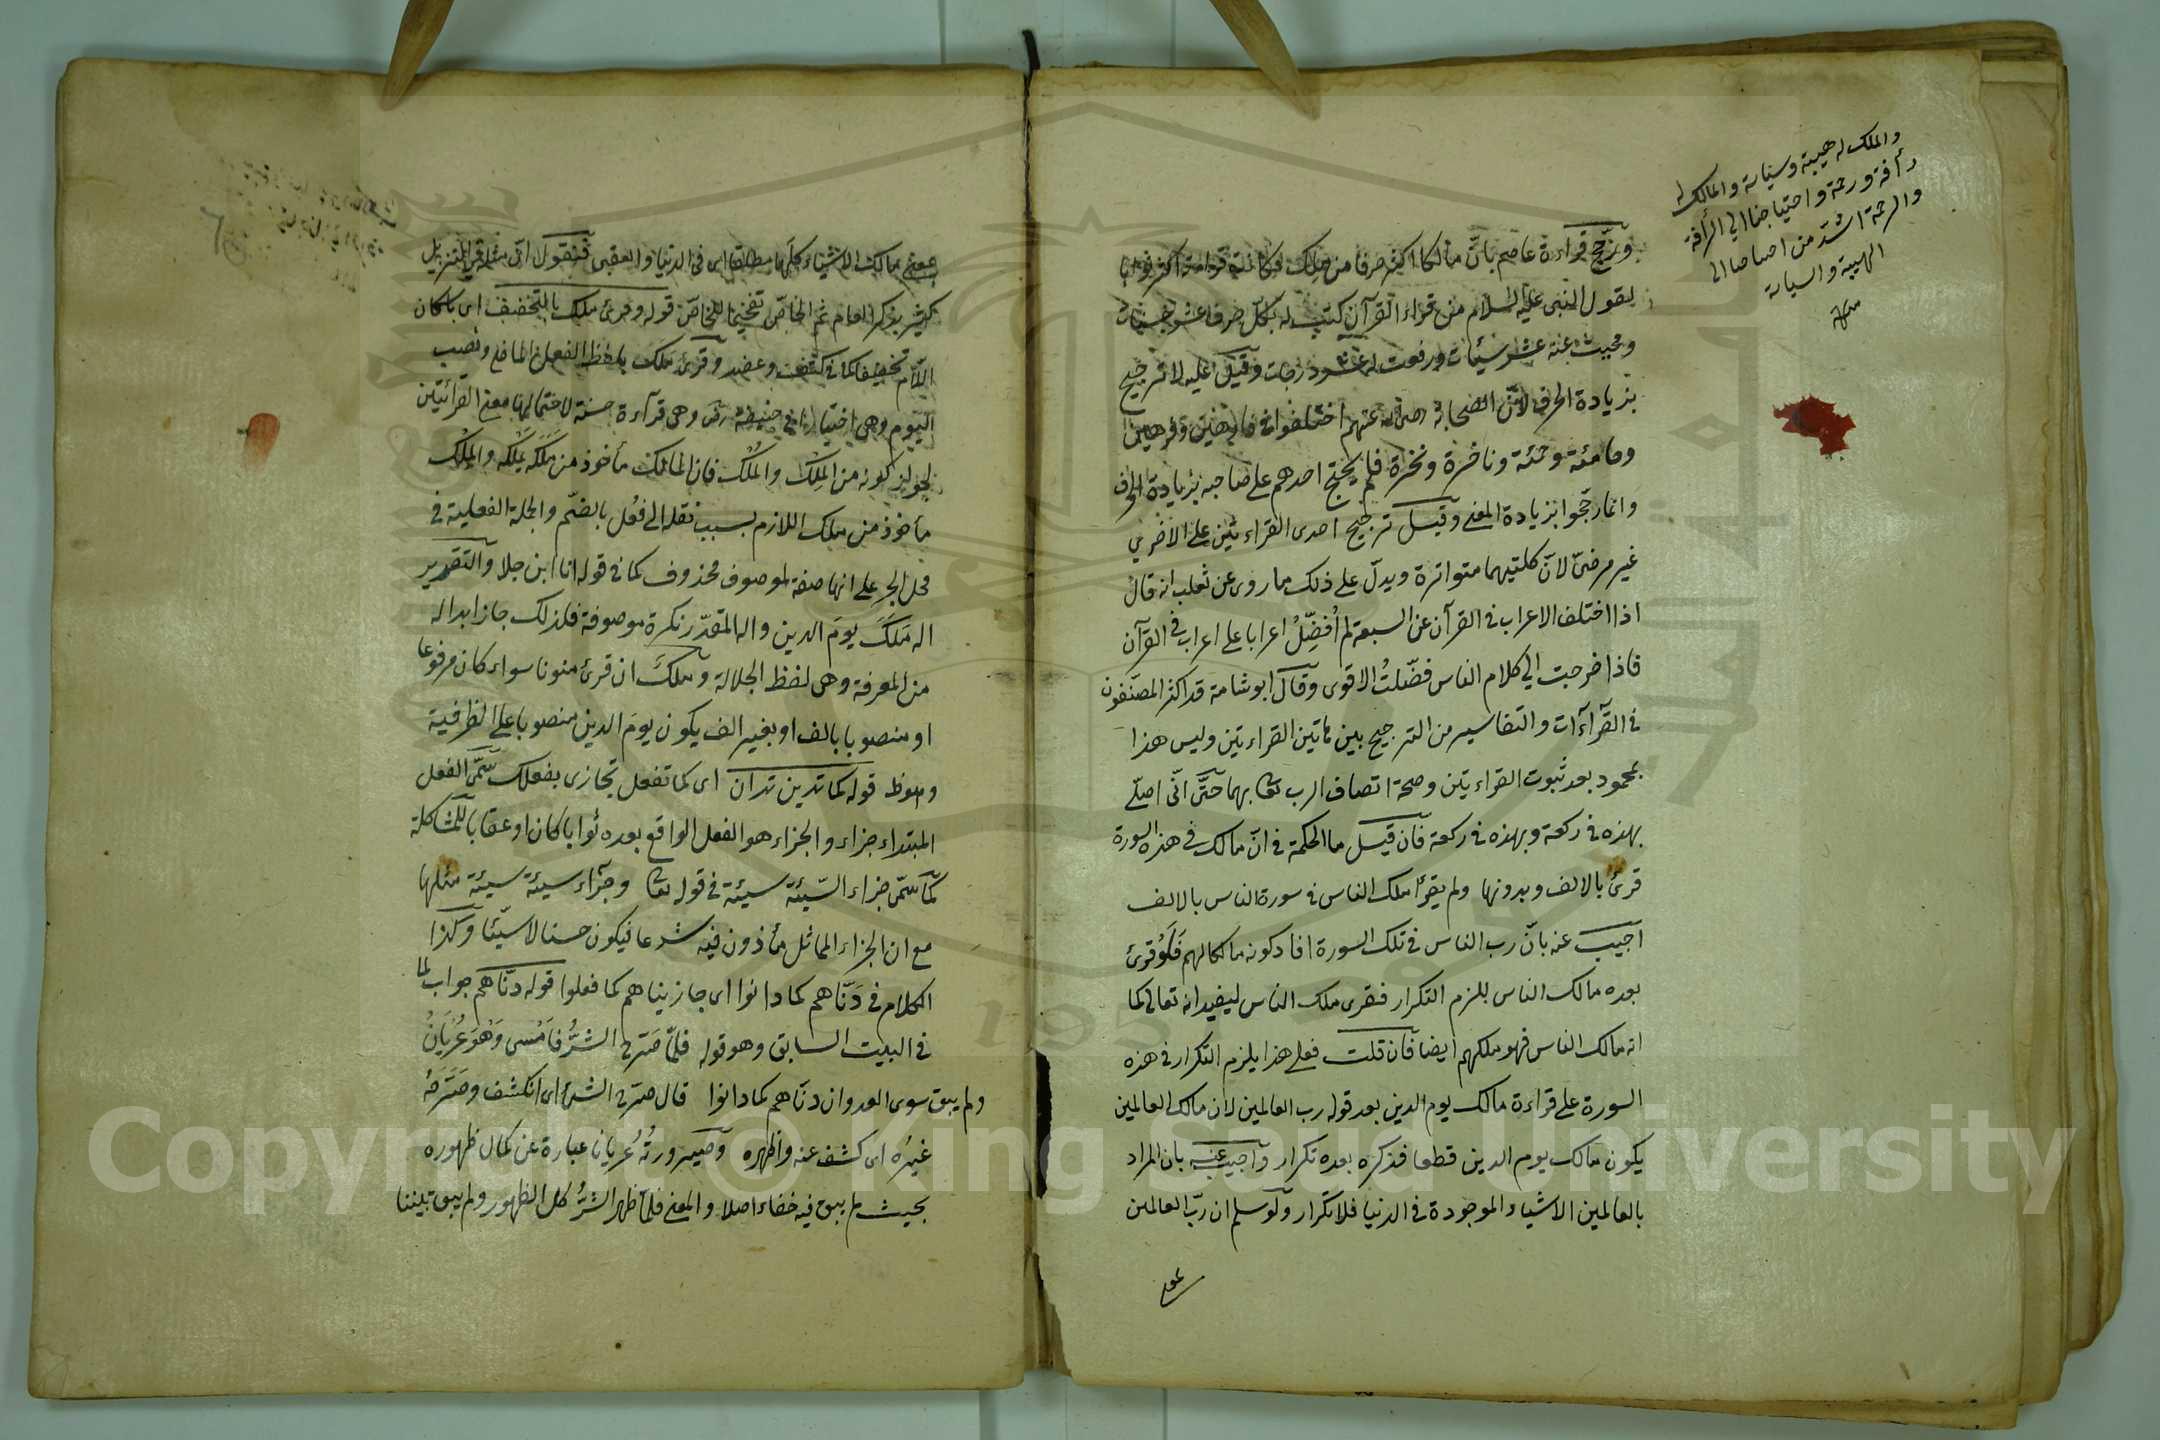 والملك له هيبة وسياسة والمالك له
رأفة ورحمة واحتياجنا الى الرأفة
والرحمة اشد من احتياجنا الى
الهيبة والسياسة
ورجح قراءة عاصم بانّ مالكا اكثر حرفا من ملك فكانت قراءته اكثر ثوابا
لقول النبي عليه السلام من قراء القرآن كتب له بكل حرف عشر حسنات
ومحيت عنه عشر سيئات ورفعت له عشر درجات وقيل عليه لا ترجيح
بزيادة الحرف لانّ الصحابة رضى الله عنهم اختلفوا في فارهين وفرهين
وحامئة وحمئة وناخرة ونخرة فلم يحتج احدهم على صاحبه بزيادة الحرف
وانما رجحوا بزيادة المعنى وقيل ترجيح احدى القراءتين على الاخرى
غير مرضىّ لانّ كلتيهما متواترة ويدلّ على ذلك ما روى عن ثعلب انه قال
اذا اختلف الاعراب في القرآن عن السبعة لم اُفضّلُ اعرابا على اعراب في القرآن
فاذا خرجت الى كلام الناس فضّلتُ الاقوى وقال ابو شامة قد اكثر المصنفون
في القرآءآت والتفاسير من الترجيح بين هاتين القراءتين وليس هذا
بمحمود بعد ثبوت القراءتين وصحة اتصاف الرب تعا بهما حتّى انّى اصلّى
بهذه في ركعة وبهذه في ركعة فان قيل ما الحكمة في انّ مالك في هذه السورة
قرئ بالالف وبدونها ولم يقرأ ملك الناس في سورة الناس بالالف
اجيب عنه بانّ رب الناس في تلك السورة افاد كونه مالكا لهم فَلَوْ قرئ
بعده مالك الناس يلزم التكرار فقرى ملك الناس ليفيد انه تعالى كما
انه مالك الناس فهو ملكهم ايضا فان قلت فعلى هذا يلزم التكرار في هذه
السورة على قراءة مالك يوم الدين بعد قوله رب العالمين لان مالك العالمين
يكون مالك يوم الدين قطعا فذكره بعده تكرار واجيب عنه بان المراد
بالعالمين الاشياء الموجودة في الدنيا فلا تكرار ولو سلم ان ربّ العالمين
بمعنى مالك الاشياء كلها مطلقا اى في الدنيا والعقبى فنقول انّ مثله في التنزيل
كثير يذكر العام ثم الخاصّ تفخيما للخاصّ قوله وقرئ ملك بالتخفيف اى باسكان
اللّام تخفيفا كما في كتف وعضد وقرئ ملك بلفظ الفعل الماضى ونصب
اليوم وهى اختيار ابى حنيفة رض وهى قرآءة حسنة لاحتمالها معنى القرائتين
لجواز كونه من المِلك والمُلك فان المالك مأخوذ من مَلَكَه يَملكه والمِلك
مأخوذ من ملك اللازم بسبب نقله الى فعُل بالضمّ والجملة الفعلية في
محل الجر على انها صفة لموصوف محذوف كما في قوله انا ابن جلا والتقدير
اله مَلَكَ يومَ الدين واله المقدّر نكرة موصوفة فلذلك جاز ابداله
من المعرفة وهى لفظ الجلالة وملك ان قرئ منونا سواء كان مرفوعا
او منصوبا بالف او بغير الف يكون يومَ الدين منصوبا على الظرفية
قوله كما تدين تدان اى كما تفعل تجازى بفعلك سمّى الفعل
المبتداء جزاء والجزاء هو الفعل الواقع بعده ثوابا كان او عقابا للمشاكلة
كما سمّى جزاء السّيئة سيئة في قوله تعا وجزآء سيئة سيئة مثلها
مع ان الجزاء المماثل مأذون فيه شرعا فيكون حسنا لا سيّئا وكذا
الكلام في دَنّاهم كما دانوا اى جازيناهم كما فعلوا قوله دنّاهم جواب لما
في البيت السابق وهو قوله فلمّا صَرّح الشرُّ فَاَمْسى وَهُوَ عُرْيَانُ
ولم يبق سوى العدوان دنّاهم كما دانوا قال صرّح الشئ اى انكشف وصَرّحَهُ
غيرُه اى كشف عنه واظهره وصيرورتُه عُريانا عبارة عن كمال ظهوره
بحيث لم يبق فيه خفاء اصلا والمعنى فلمّا ظهر الشرُّ كل الظهور ولم يبق بيننا
Copyright © King Saud University
1957